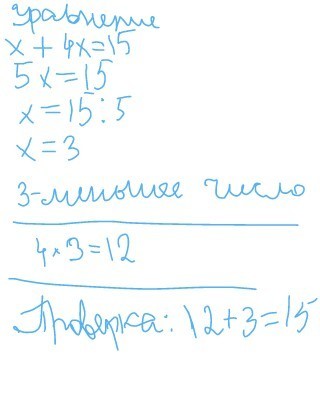 уравнение
x + 4x=15
5x=15
x=15:5
x=3
3-меньшее число
4×3=12
Проверка: 12+3=15